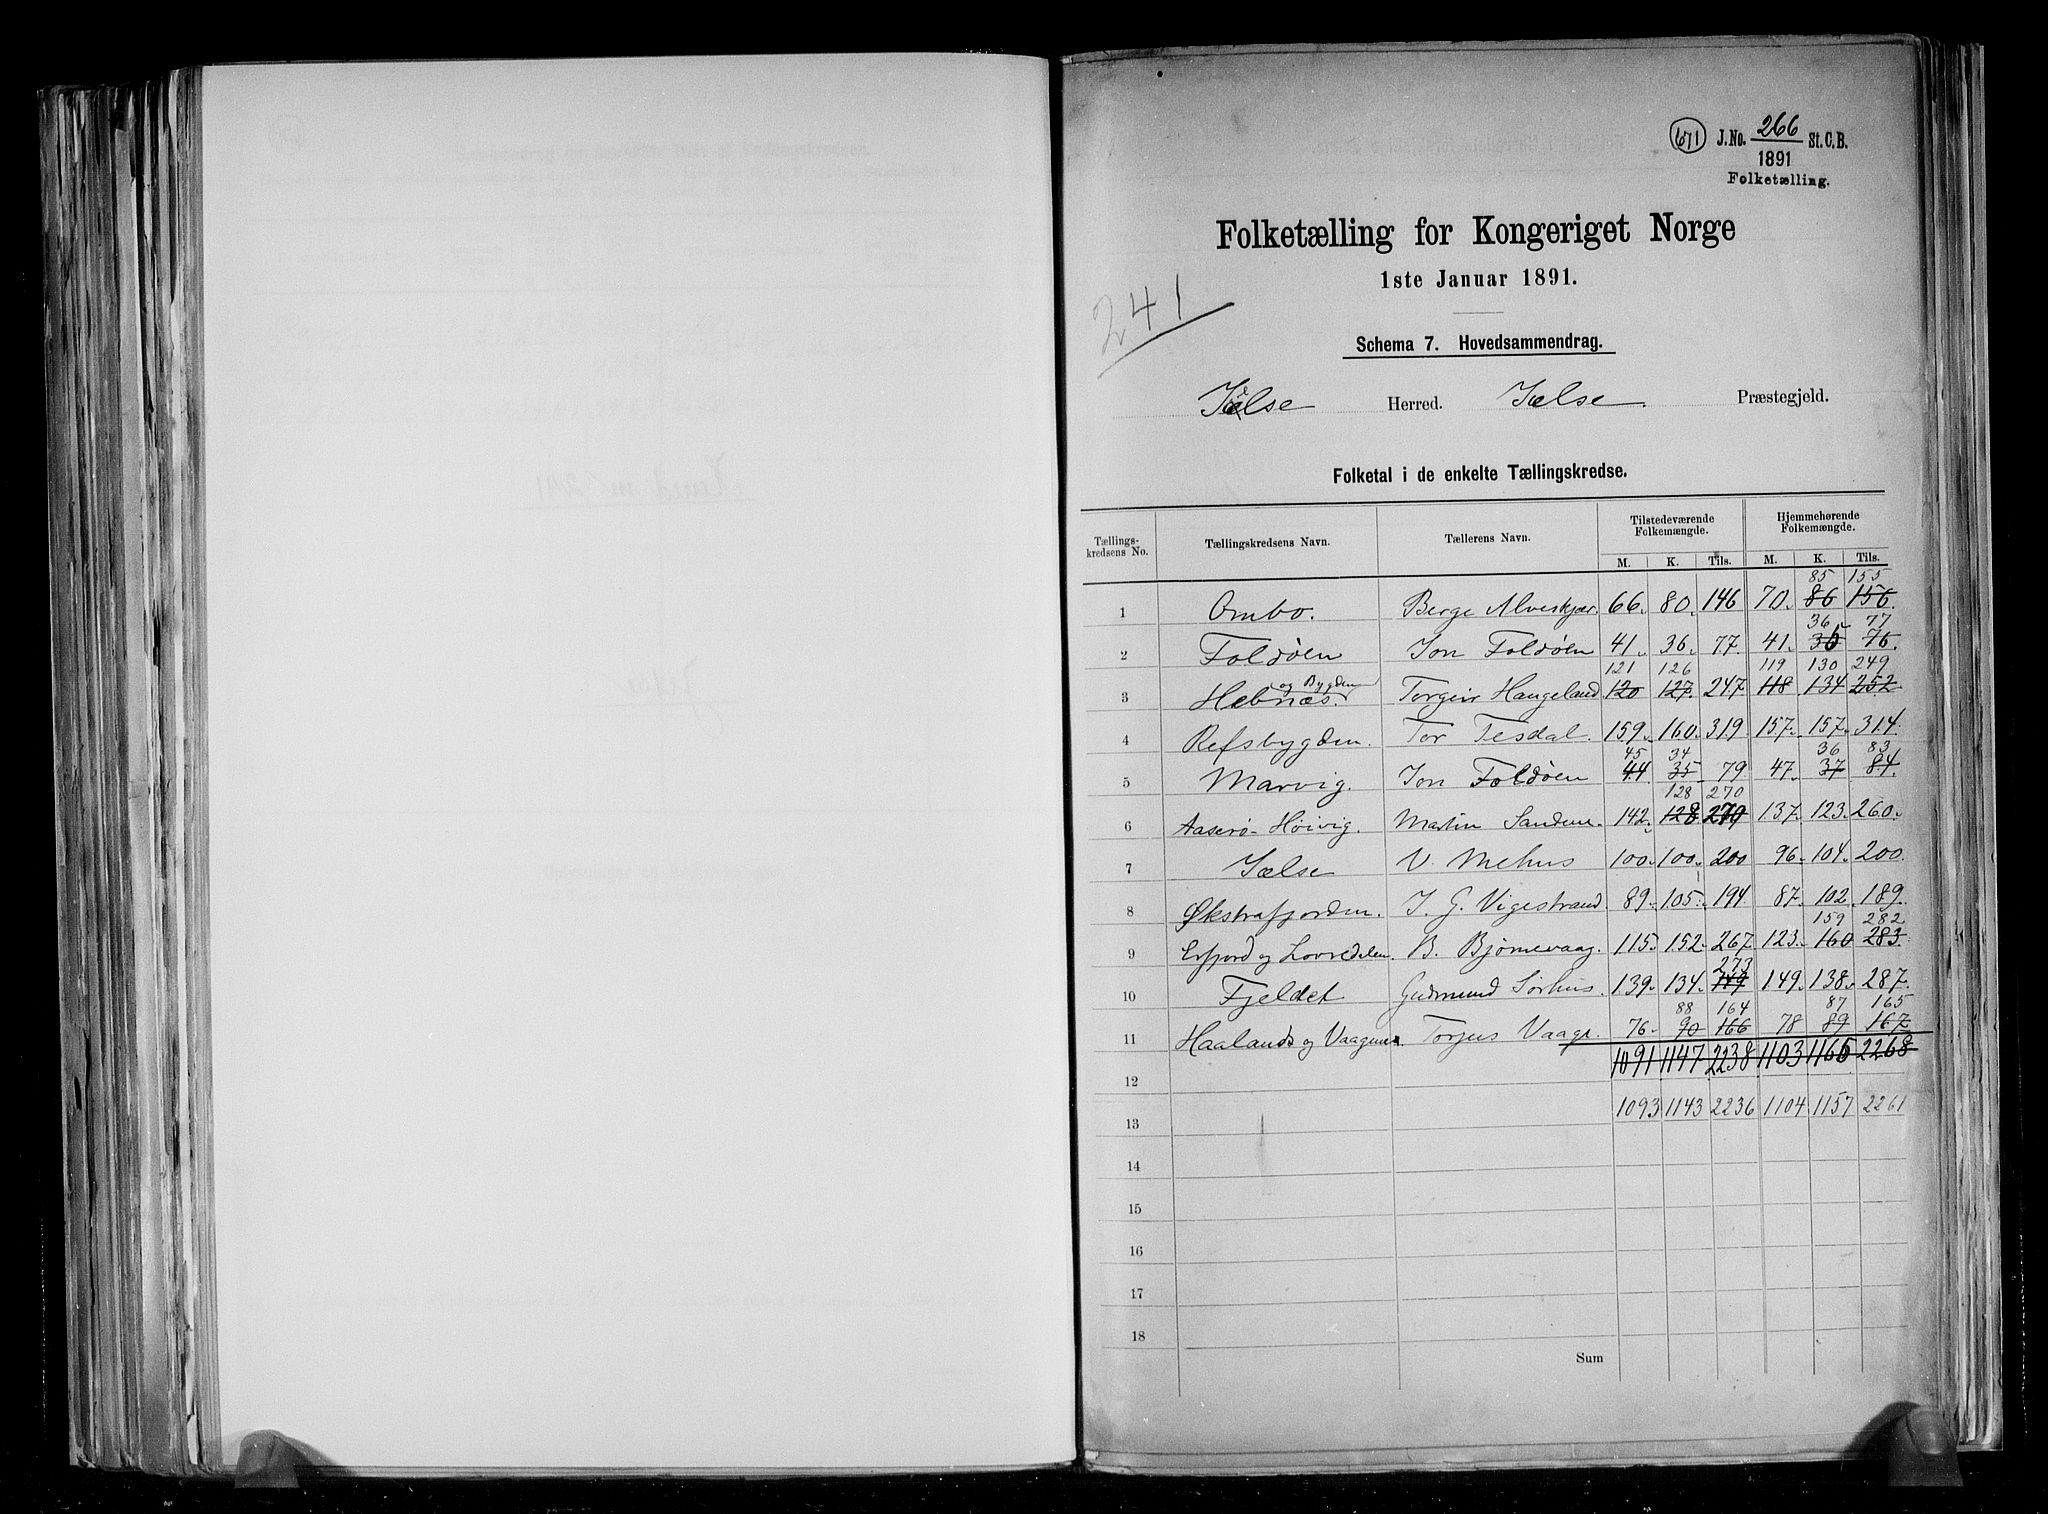 671 J. No. 266 St. C. B.
1891
Folketælling.
Folketælling for Kongeriget Norge
1ste Januar 1891.
241
Schema 7. Hovedsammendrag.
Jelse Herred. Jælse Præstegjeld.
Folketal i de enkelte Tællingskredse.
Tællings-kredsens No. Tællingskredsens Navn. Tællerens Navn. Tilstedeværende Folkemængde. Hjemmehørende Folkemængde.
M. K. Tils. M. K. Tils.
85 155
1 Ombo. Berge Alveskjær. 66. 80. 146 70. 86 156.
36 77
2 Foldøen Jon Foldøen 41. 36. 77. 41. 35 76.
og Bygden 121 126 119 130 249
3 Hebnæs. Torgeir Haugeland 120 127. 247. 118 134 252.
4 Refsbygden. Tor Tesdal. 159. 160. 319. 157. 157. 314.
45 34 36 83
5 Marvig. Jon Foldøen 44 35 79 47. 37 84.
128 270
6 Aaserø-Høivig. Martin Sandene. 142. 128 270 137. 123. 260.
7 Jælse V. Mehus 100. 100. 200 96. 104. 200.
8 Økstrafjorden. J. G. Vigestrand. 89. 105. 194 87. 102. 189.
159 282
9 Erfjord og Lovredelen. B. Bjørnevaag. 115. 152. 267. 123. 160 283.
273
10 Fjeldet Gudmund Sørhus. 139. 134. 149. 138. 287.
88 164 87 165
11 Haalands og Vaagene. Torjus Vaage. 76. 90 166 78 89 167
12 1091 1147 2238 1103 1165 2268
13 1093 1143 2236 1104 1157 2261
14
15
16
17
18
Sum